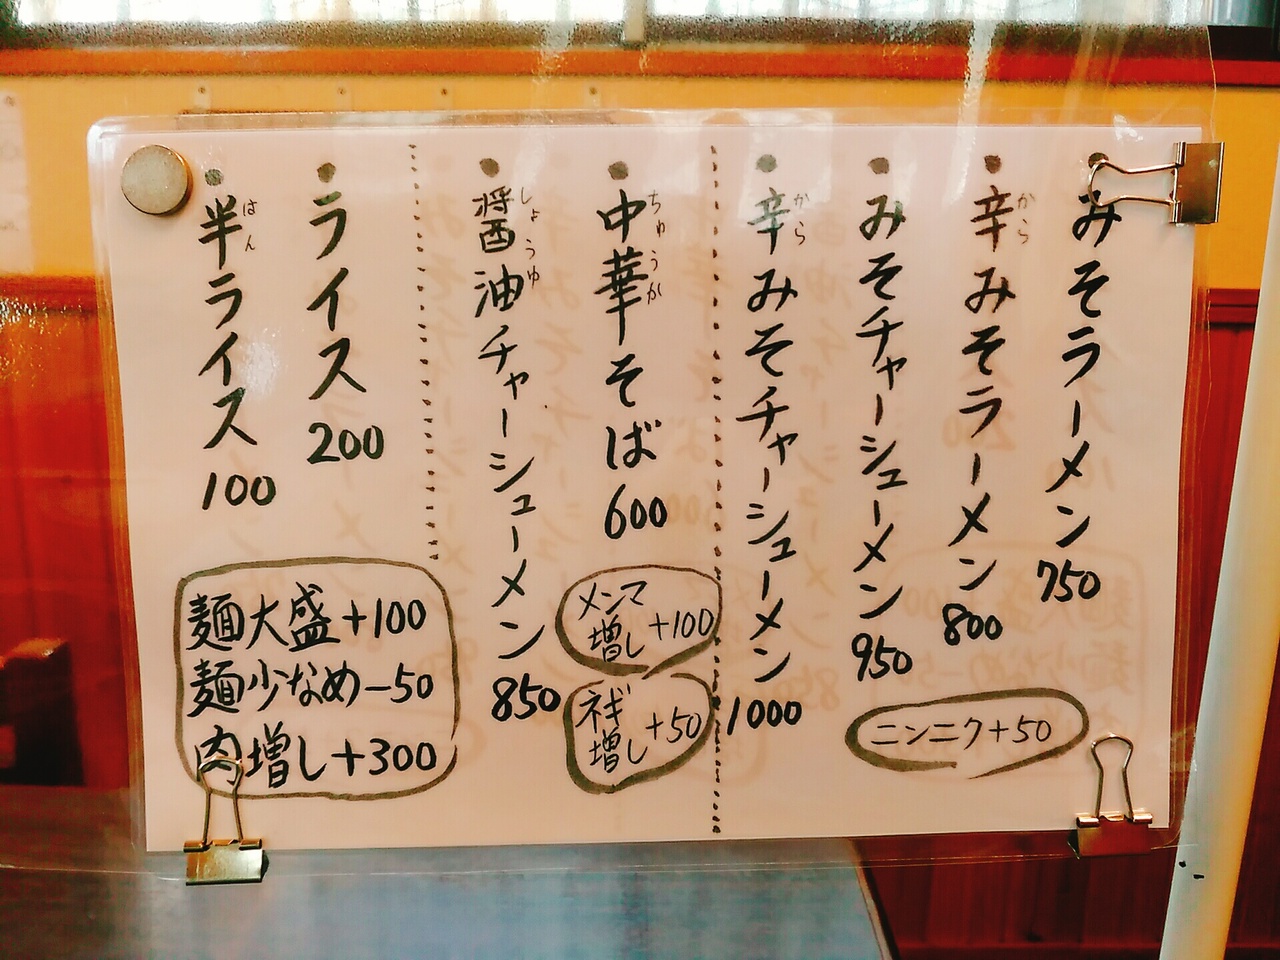 みそラーメン 750
辛みそラーメン 800
から
みそチャーシューメン 950
辛みそチャーシューメン 1000
から
ニンニク+50
中華そば 600
ちゅうか
醤油チャーシューメン 850
しょうゆ
メンマ
増し +100
ネギ
増し +50
ライス 200
半ライス 100
はん
麺大盛+100
麺少なめ-50
肉増し+300